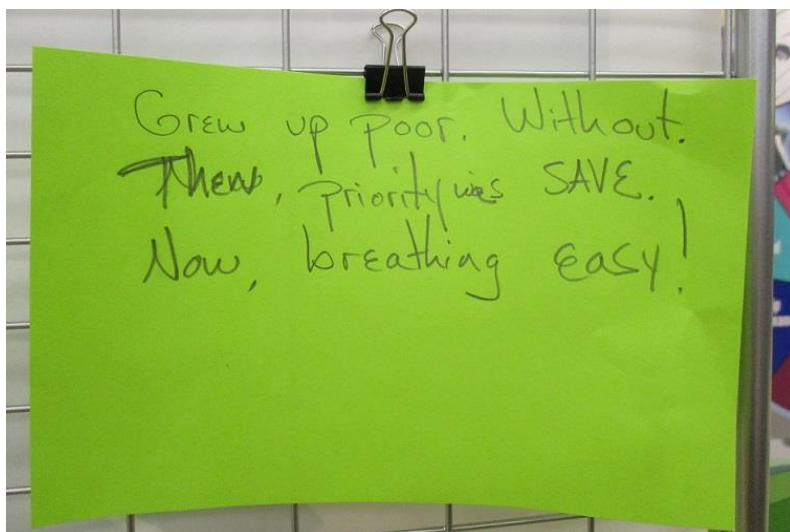 Grew up poor. Without.
Then, priority was SAVE.
Now, breathing easy!